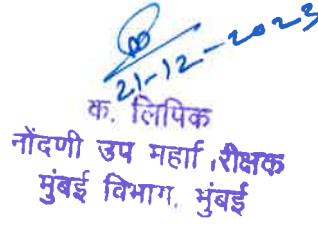 21-12-2023
क. लिपिक
नोंदणी उप महा रीक्षक
मुंबई विभाग, मुंबई